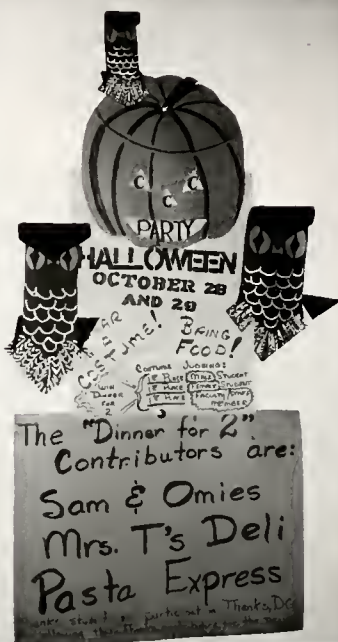 C C
C
PARTY
HALLOWEEN
OCTOBER 28
AND 29
WEAR
COSTUME!
BRING
FOOD!
WIN
DINNER
FOR
2
COSTUME JUDGING:
1st PLACE MALE STUDENT
1st PLACE FEMALE STUDENT
1st PLACE FACULTY/STAFF
MEMBER
The "Dinner for 2"
Contributors are:
Sam & Omies
Mrs. T's Deli
Pasta Express
Thanks, DC